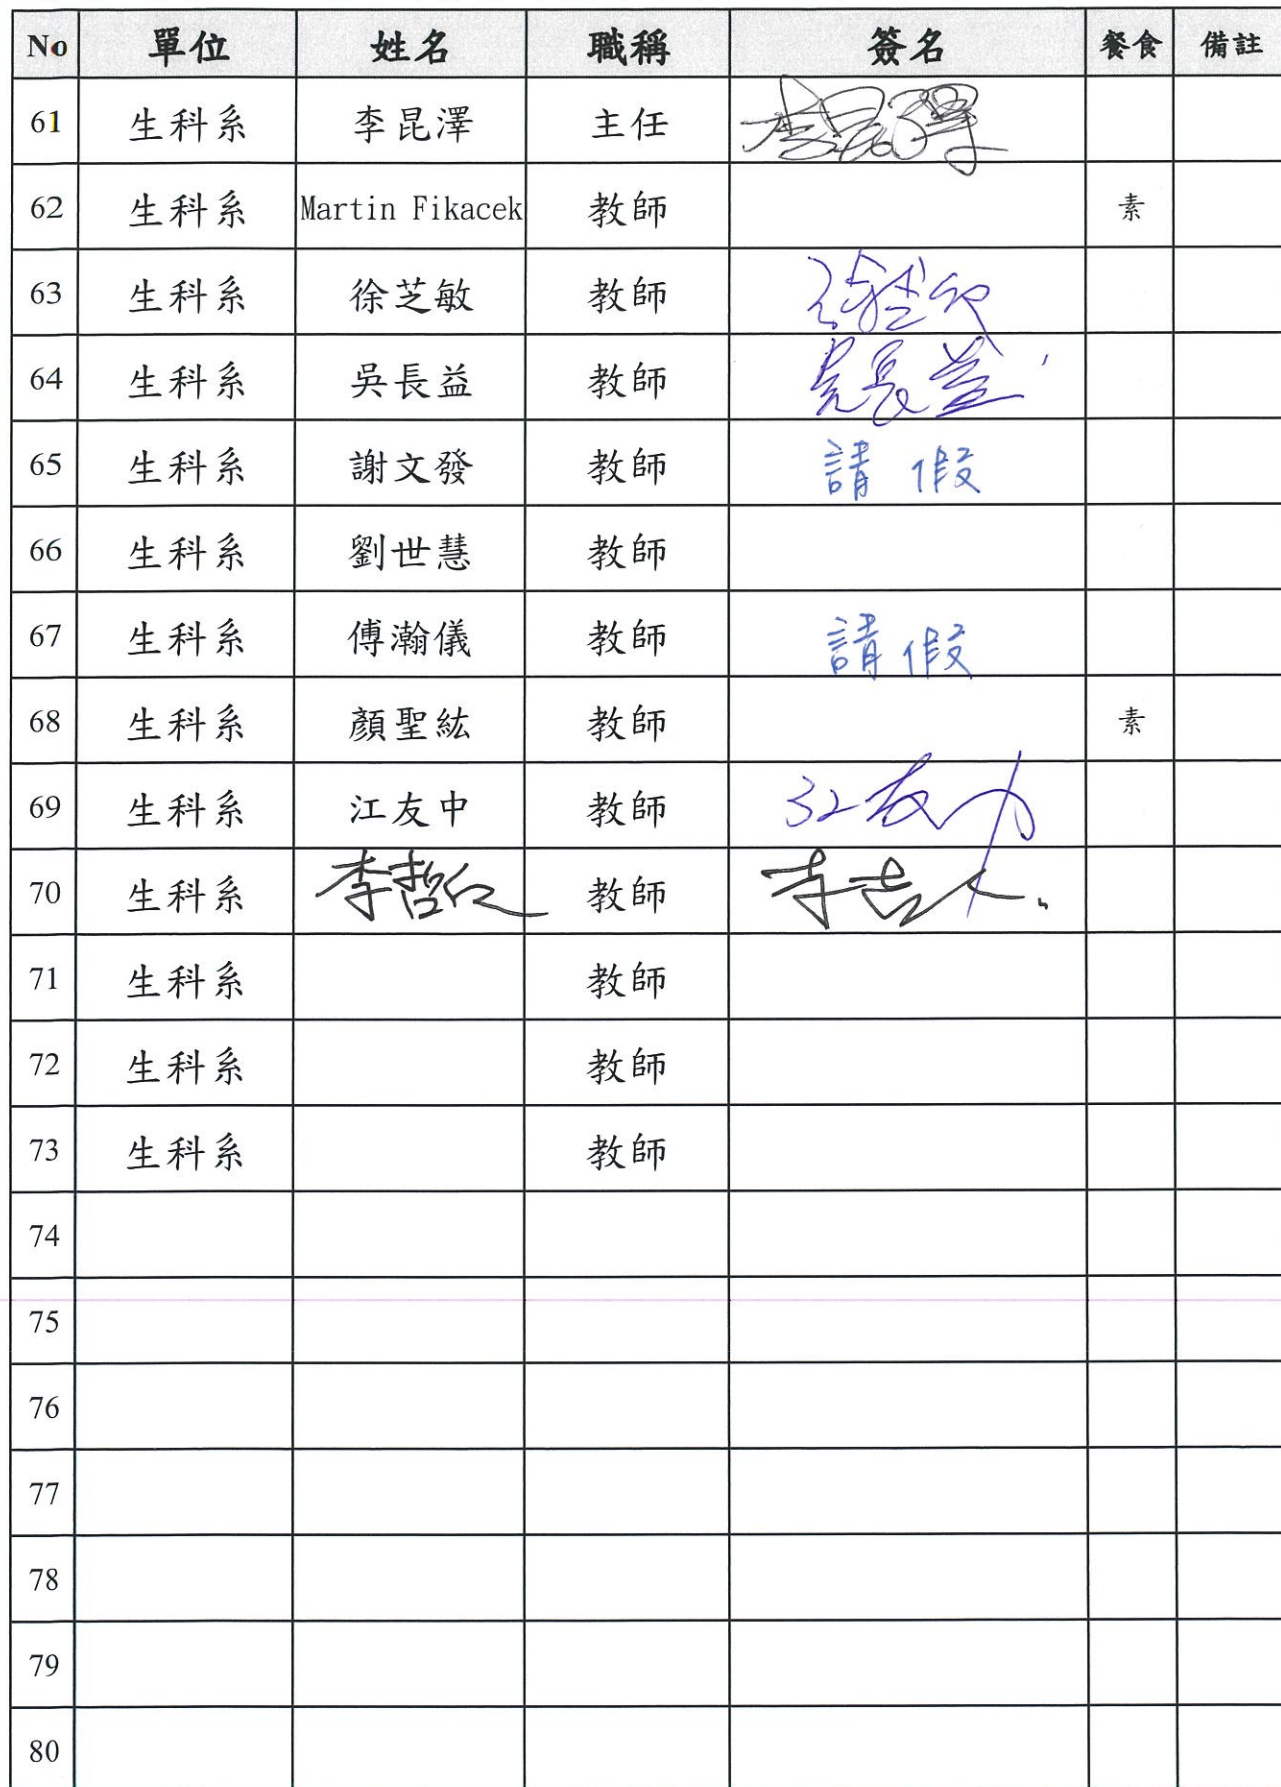 No 單位 姓名 職稱 簽名 餐食 備註
61 生科系 李昆澤 主任 李昆澤
62 生科系 Martin Fikacek 教師 素
63 生科系 徐芝敏 教師
64 生科系 吳長益 教師 吳長益
65 生科系 謝文發 教師 請假
66 生科系 劉世慧 教師
67 生科系 傅瀚儀 教師 請假
68 生科系 顏聖紘 教師 素
69 生科系 江友中 教師 江友中
70 生科系 李哲仁 教師
71 生科系 教師
72 生科系 教師
73 生科系 教師
74
75
76
77
78
79
80